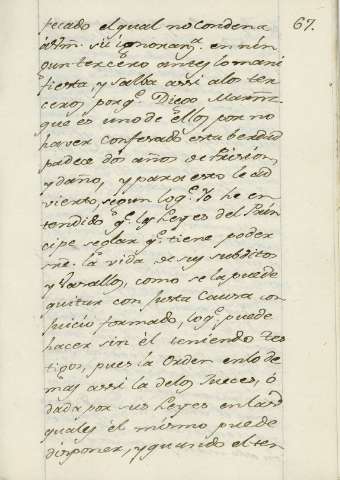 67.
tecado elqual no condena
âstm. sú ignoranz.ª en nin
gun tercero antes lo mani
fiesta, y salba assi alos ter
ceros, porq.ᵉ Diego Martinz
que es uno de ellos, por no
haver confesado esta berdad
padece dos años de Prision,
y daño, y para esto le ad
vierto, segun loq.ᵉ Yo he en
tendido q.ᵉ las Leyes del Prin
cipe seglar q.ᵉ tiene poder
sre. la vida de sus subditos
y Vasallos, como se la puede
quitar con Justa Causa con
Juicio formado, loq.ᵉ puede
hacer sin èl teniendo tes
tigos, pues la Orden en lo de
mas assi la de los Jueces, ó
dada por sus Leyes en las
quales él mismo puede
disponer, y quando el ten